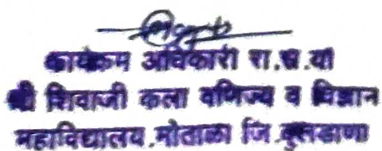 कार्यक्रम अधिकारी रा.से.यो
श्री शिवाजी कला वणिज्य व विज्ञान
महाविद्यालय.मोताळा जि.बुलडाणा